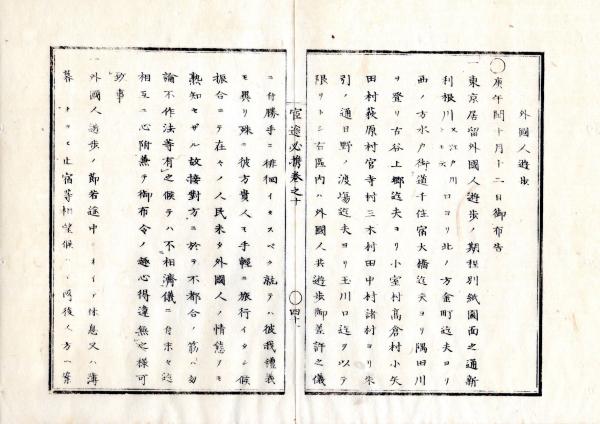 外國人遊歩
〇庚午閏十月十二日御布告
一東京居留外國人遊歩ノ期程別紙圖面之通新
利根川 又江戸川トモ云 口ヨリ北ノ方金町迄夫ヨリ
西ノ方水戸街道千住宿大橋迄夫ヨリ隅田川
ヲ登リ古谷上郷迄夫ヨリ小室村高倉村小矢
田村荻原村宮寺村三木村田中村諸村ヨリ朱
引ノ通日野ノ渡塲迄夫ヨリ玉川口迄ヲ以テ
限リトシ右區内ハ外國人共遊歩御差許之儀
宦途必携巻之十
〇四十
ニ付勝手ニ徘徊イタスベク就テハ彼我禮義
モ異リ殊ニ彼方貴人モ手輕ニ旅行イタシ候
振合ニテ在々ノ人民未タ外國人ノ情態ヲモ
熟知セザル故接對方ニ於テ不都合ノ筋ハ勿
論不作法等有之候テハ不相濟儀ニ付末々迄
相互ニ心附兼テ御布令ノ趣心得違無之樣可
致事
一外國人遊歩ノ節若途中ニオイテ休息又ハ薄
暮オヨヒ止宿等相望候ハヽ